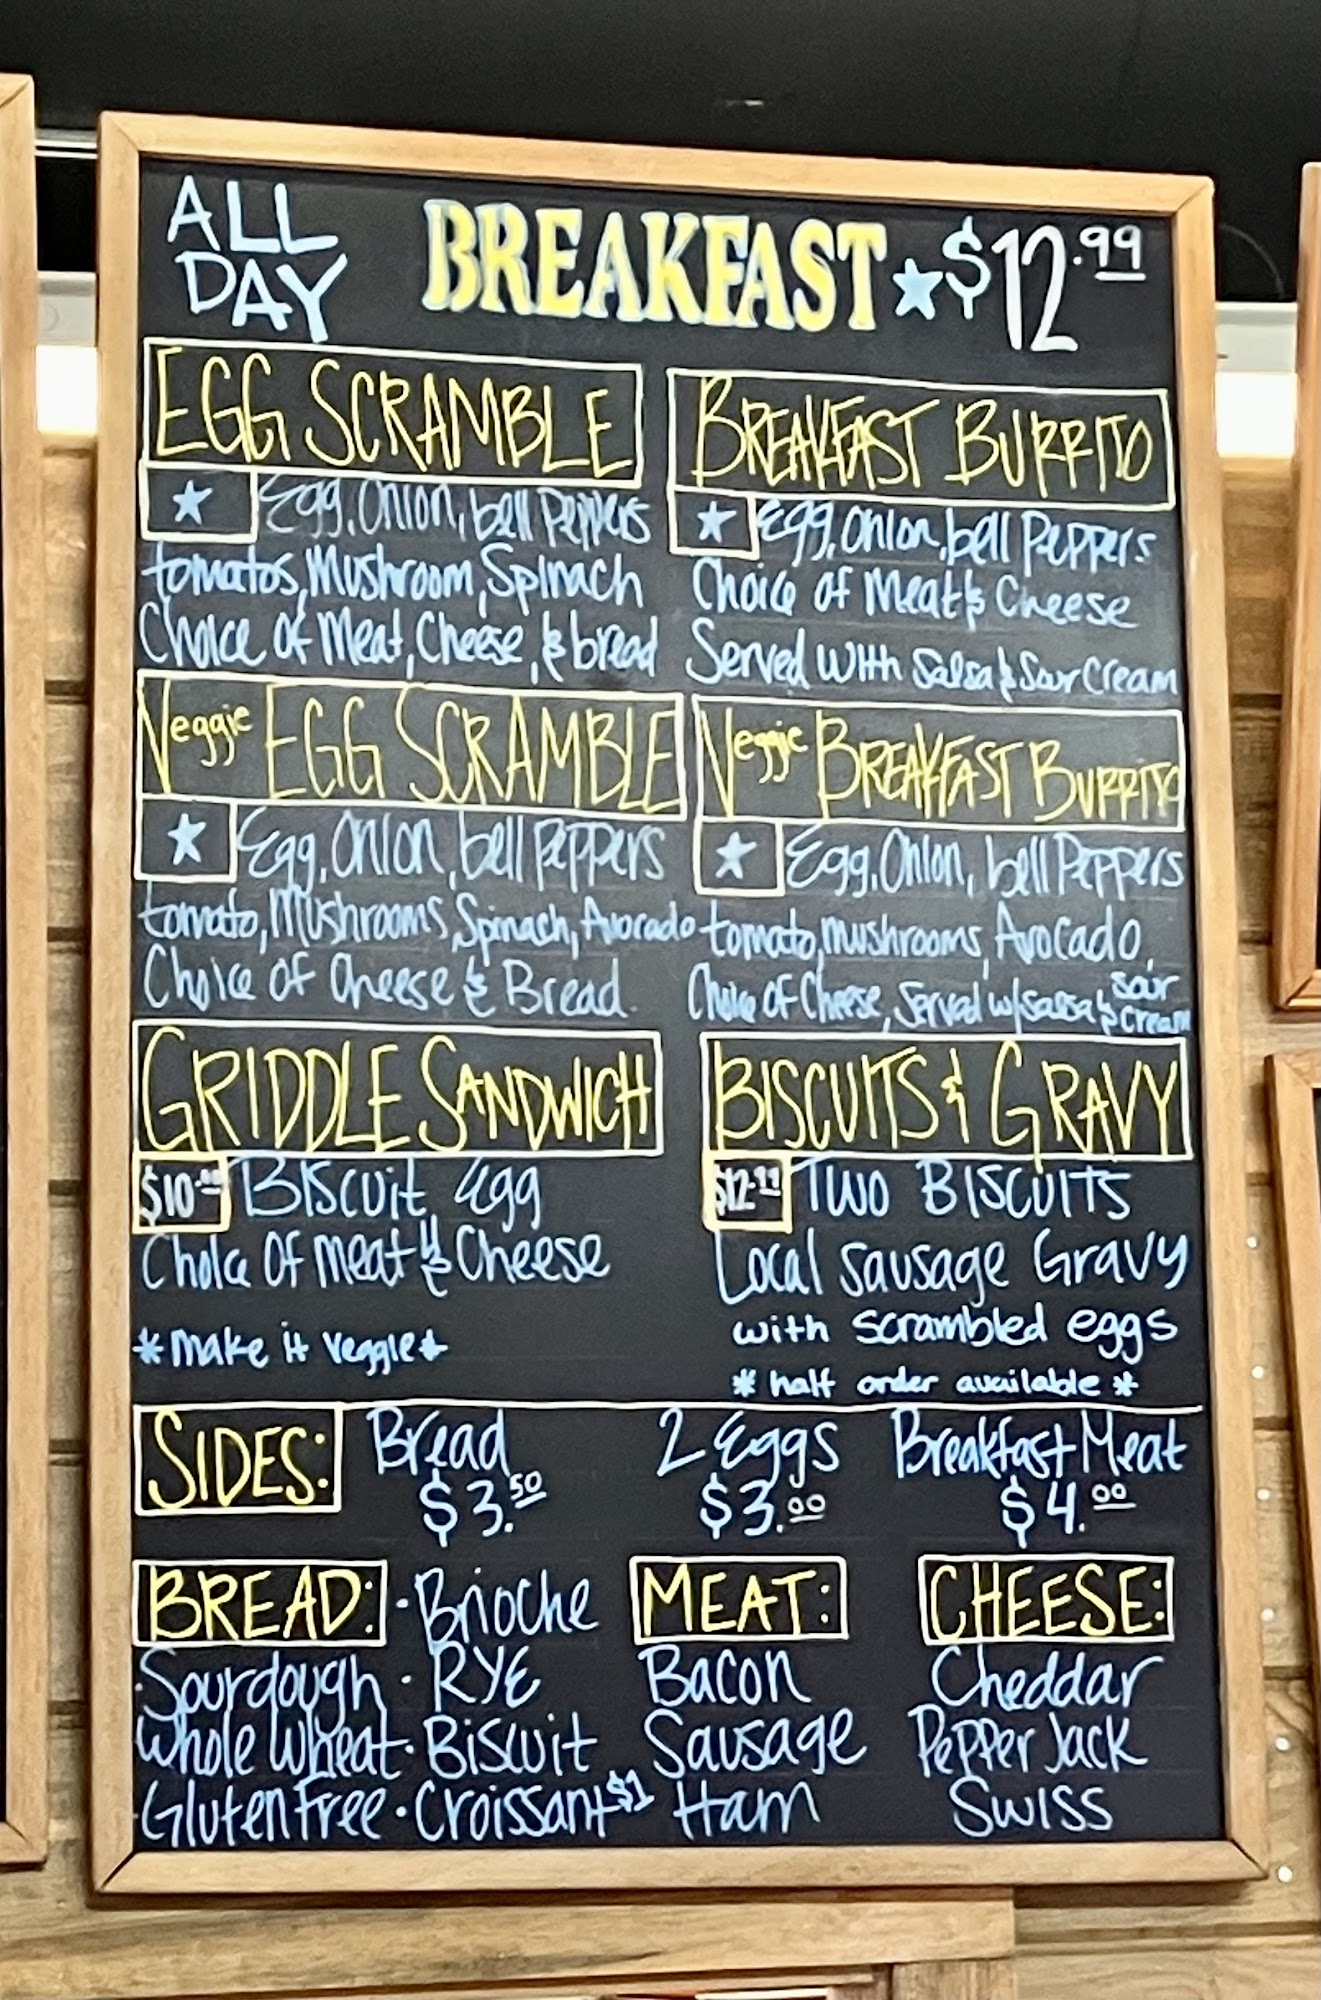 ALL DAY BREAKFAST ★ $12.99
EGG SCRAMBLE
★ Egg, Onion, bell Peppers
tomatos, Mushroom, Spinach
Choice Of Meat, Cheese, & bread
BREAKFAST BURRITO
★ Egg, Onion, bell Peppers
Choice of Meat & Cheese
Served With Salsa & Sour Cream
Veggie EGG SCRAMBLE
★ Egg, Onion, bell Peppers
tomato, Mushrooms, Spinach, Avocado
Choice Of Cheese & Bread
Veggie BREAKFAST BURRITO
★ Egg, Onion, bell Peppers
tomato, mushrooms, Avocado,
Choice Of Cheese, Served w/ Salsa & sour cream
GRIDDLE SANDWICH
Biscuit, Egg
Choice Of Meat & Cheese
* Make it Veggie *
BISCUITS & GRAVY
$12.99 TWO BISCUITS
Local Sausage Gravy
with scrambled eggs
* half order available *
SIDES: Bread 2 Eggs Breakfast Meat
$3.50 $3.00 $4.00
BREAD:
· Brioche
· Sourdough · RYE
· Whole Wheat · Biscuit
· Gluten Free · Croissant $1
MEAT:
Bacon
Sausage
Ham
CHEESE:
Cheddar
Pepper Jack
Swiss